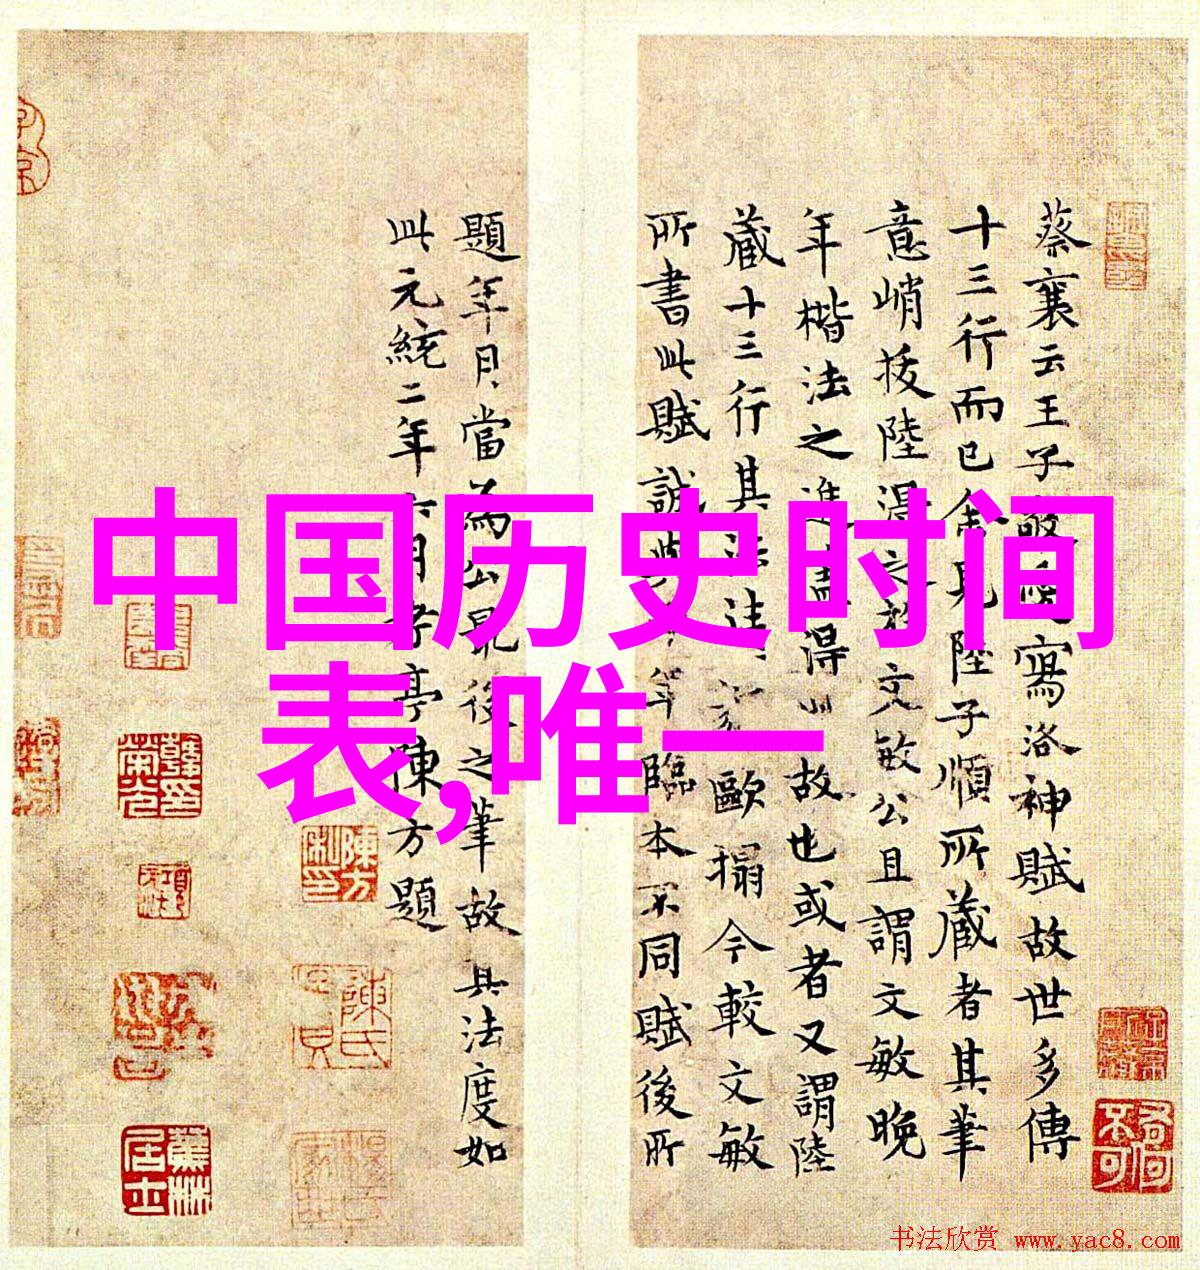 中国历史时间
表,唯一
蔡襄云王子敬寫洛神賦故世多傳
十三行而已余見陸子順所藏者其筆
意峭拔陸得之於文敏公且謂文敏晚
年楷法之進蓋得此故也或者又謂陸
藏十三行其法歐搨今較文敏
所書此賦誠年臨本不同賦後所
題年月當為公最後之筆故其法度如
此元統二年六月亭陳方題
陳方
蕉林
居士
书法欣赏 www.yac8.com